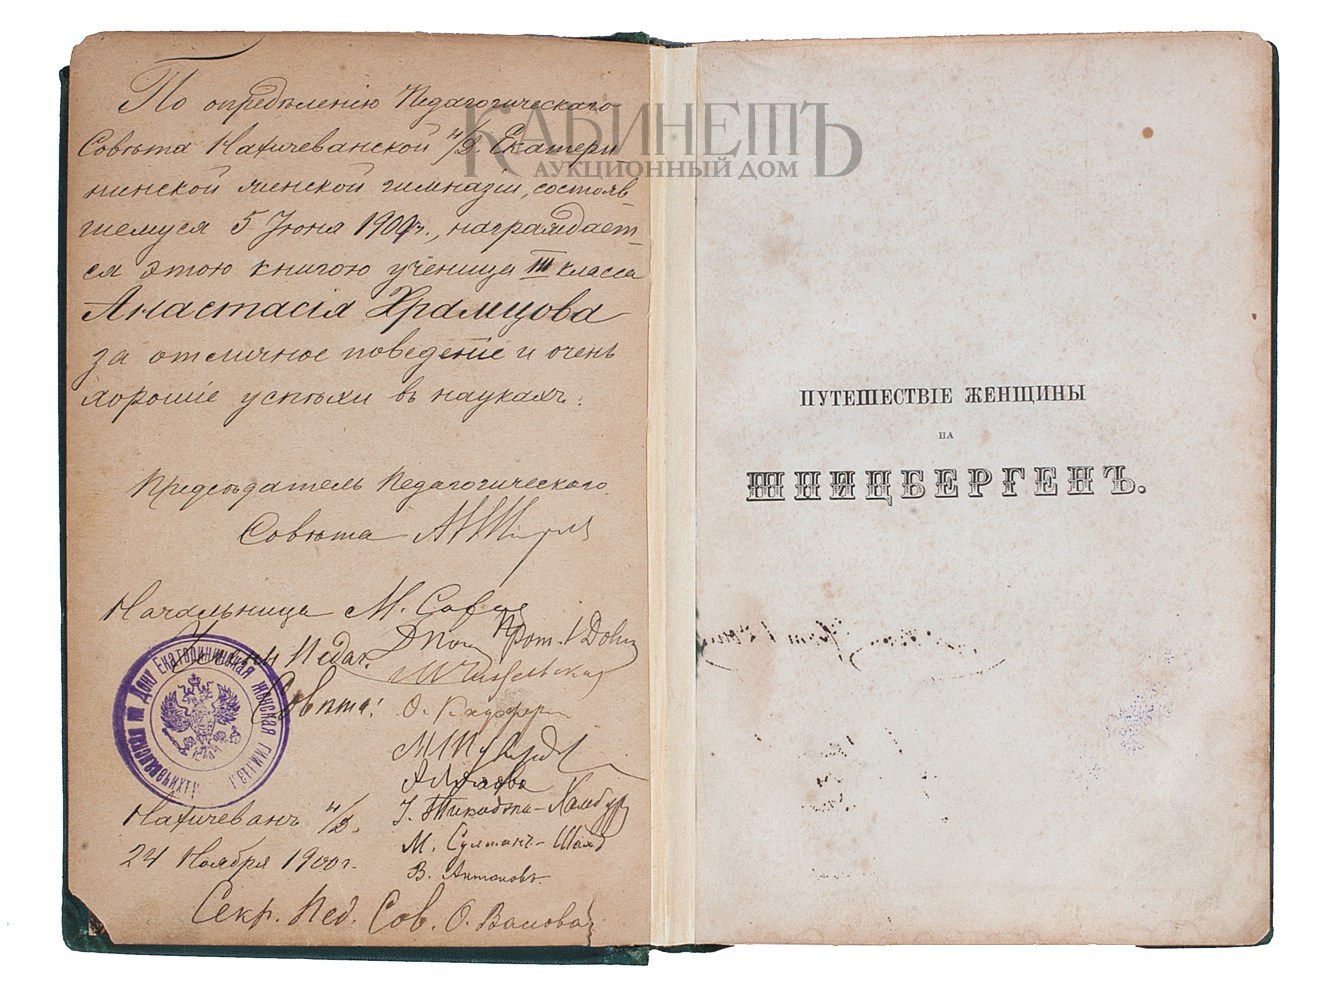 По опредѣленію Педагогическаго
Совѣта Нахичеванской н/Д. Екатери
нинской женской гимназіи, состояв
шемуся 5 Іюня 1900 г., награждает
ся этою книгою ученица III класса
Анастасія Храмцова
за отличное поведеніе и очень
хорошіе успѣхи въ наукахъ.
Предсѣдатель Педагогическаго
Совѣта
Начальница М.
Члены Педаг. Прот. І.
Совѣта:
О.
М. Султанъ-Шахъ
В. Антоновъ
Нахичевань н/Д.
24 Ноября 1900 г.
Секр. Пед. Сов. О.
НАХИЧЕВАНСКАЯ НА ДОНУ ЕКАТЕРИНИНСКАЯ ЖЕНСКАЯ ГИМНАЗІЯ
КАБИНЕТЪ
АУКЦИОННЫЙ ДОМ
ПУТЕШЕСТВІЕ ЖЕНЩИНЫ
НА
ШПИЦБЕРГЕНЪ.